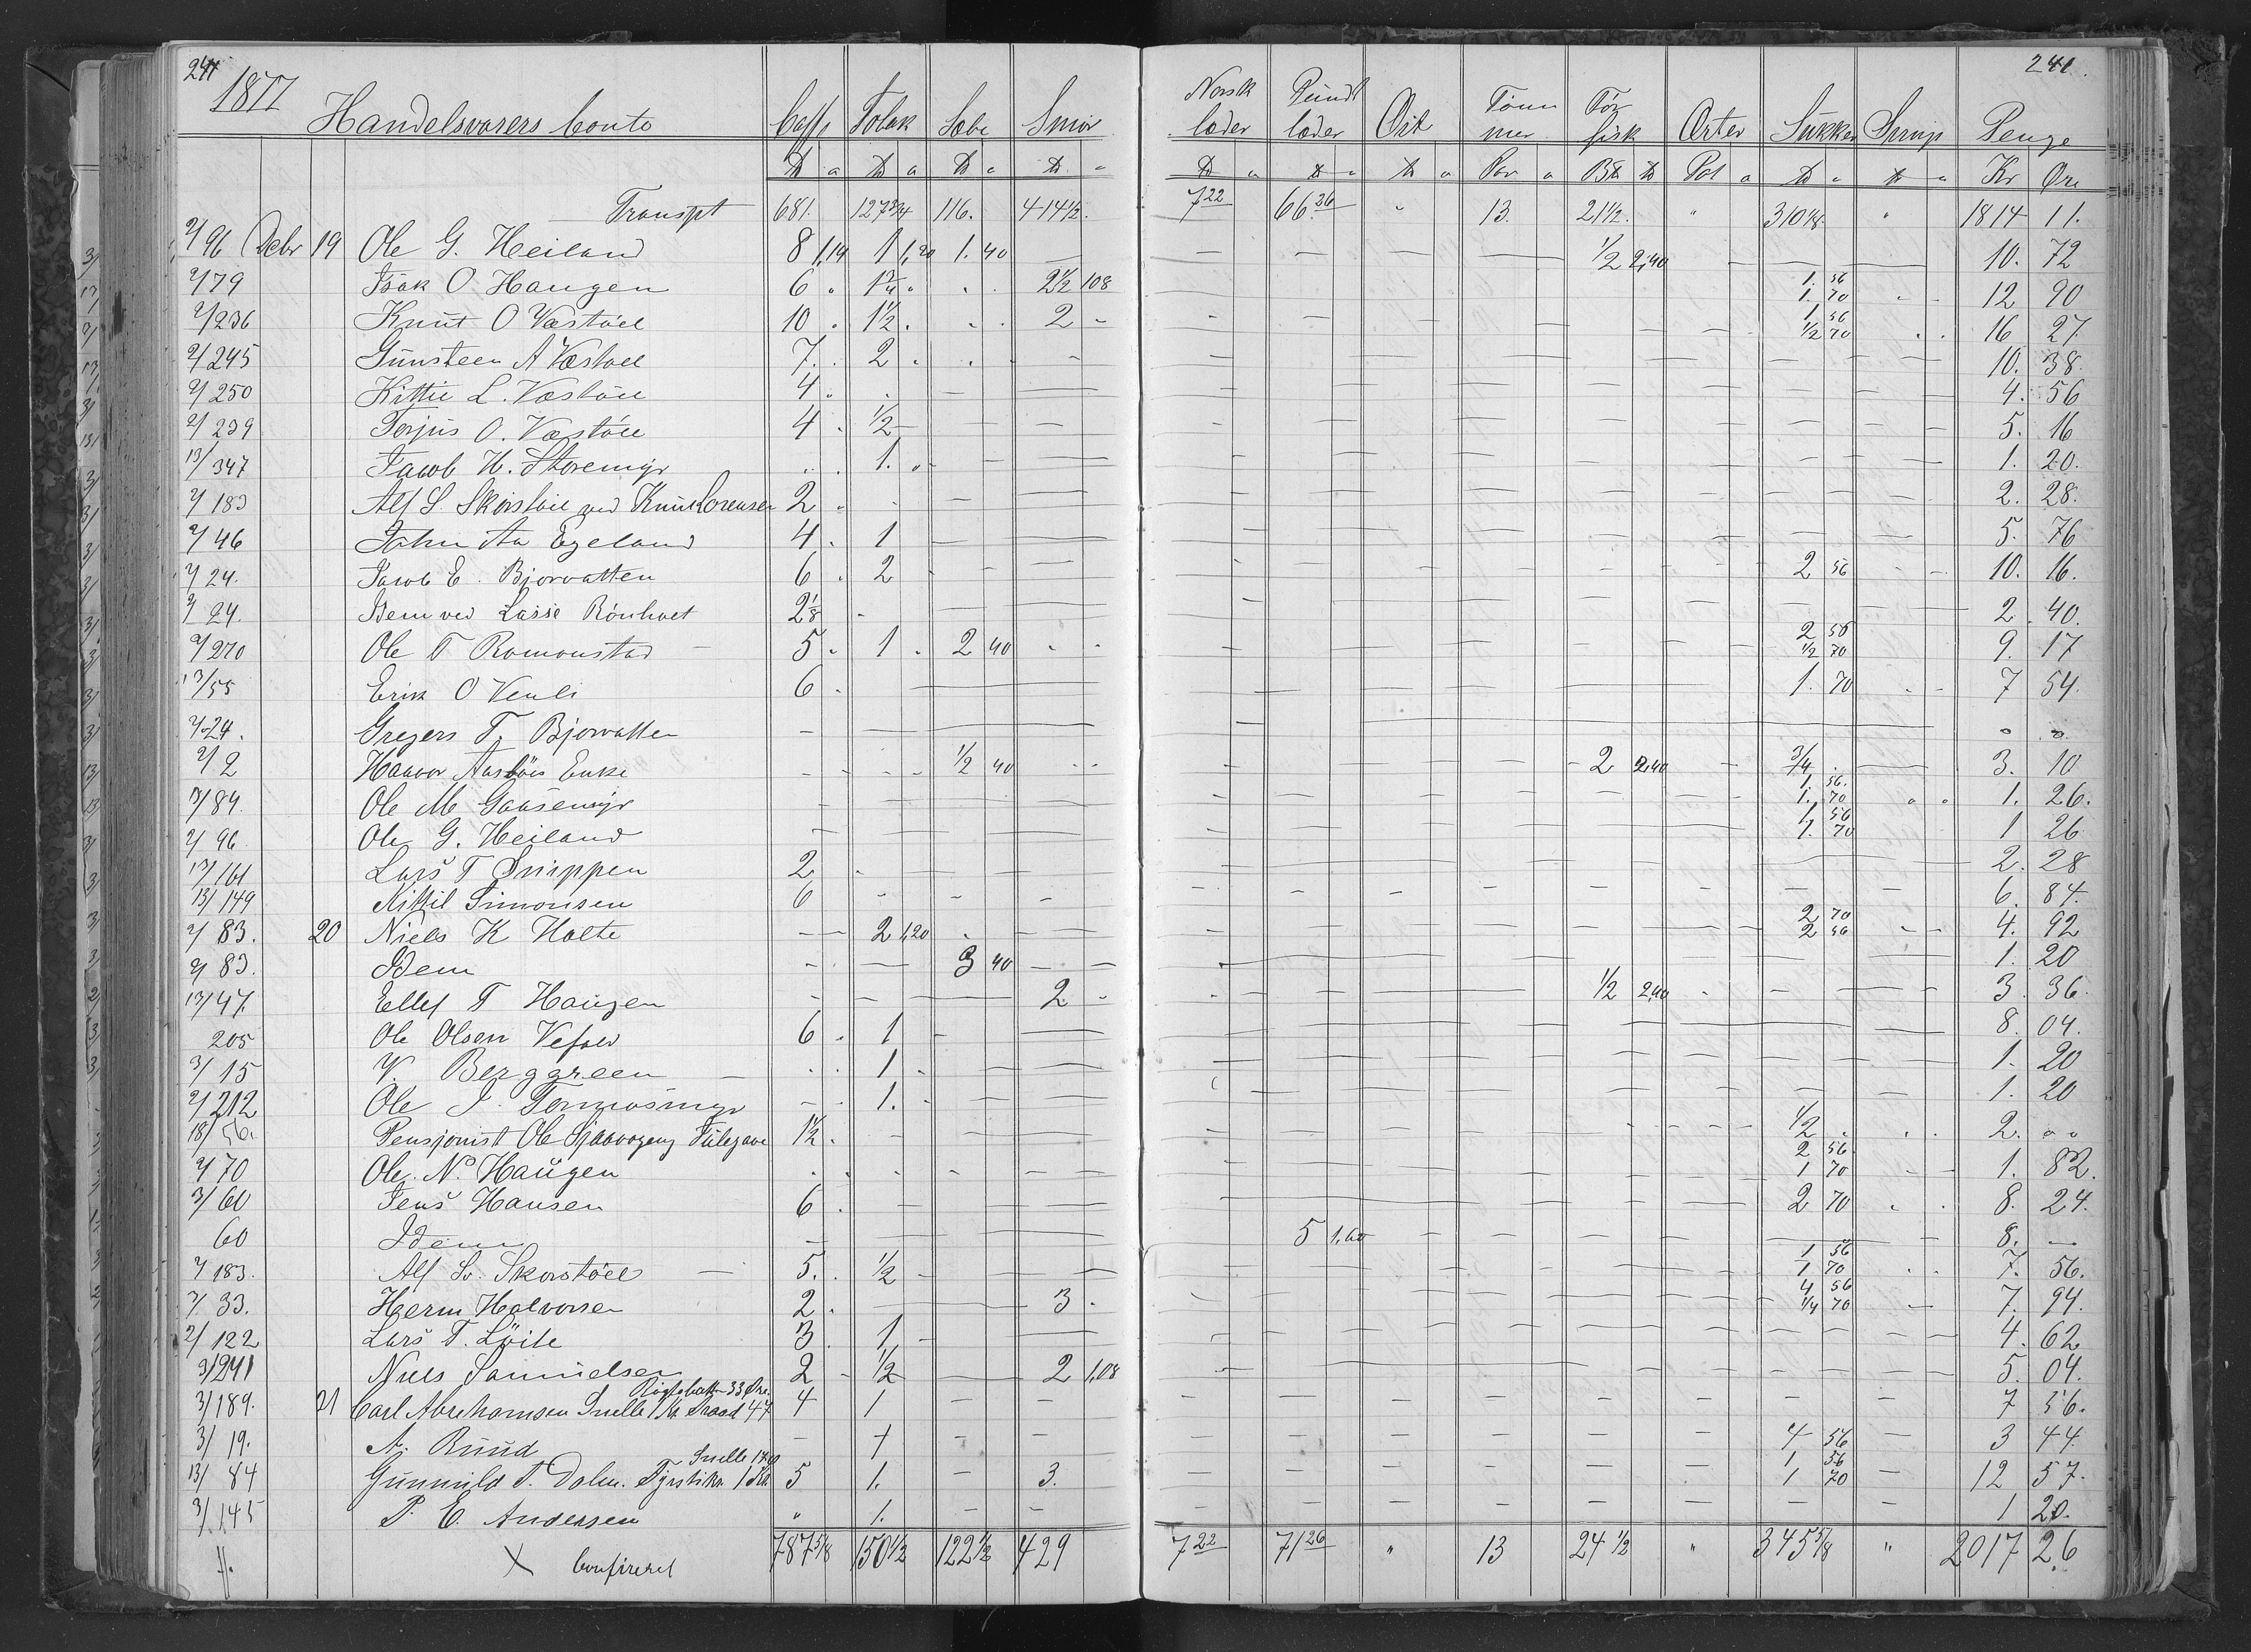 241 241.
1877 Handelsvarers Conto Caffe Tobak Sæbe Smør Norsk læder Pundt læder Ost Tømmer Tør fisk Erter Sukker Sirup Penge
Par Pot Kr Øre
Transpt 681. 127 3/4 116. 414 1/2. 7 22 66.26 " 13. 21 1/2. " 310 1/8. " 1814 11.
2/96 Debr 19 Ole G. Heiland 8 1,14 1 1,20 1. 40 — 1/2 2,40 — 10. 72
2/79 Isak O Haugen 6 " 1 3/4 " 2 1/2 108 1. 56 1. 70 12 90
2/236 Knut O Væstøel 10 . 1 1/2 . 2 - 1 56 1/2 70 16 27.
2/245 Gunsteen A Væstøel 7. . 2 . 10. 38.
2/250 Kittil L. Væstøel 4 . 4. 56
2/239 Terjus O. Væstøel 4 . 1/2 5. 16
13/347 Jacob H. Storemyr 1. 1. 20.
2/183 Alf S. Skorstøl ved Knut Lorensen 2 . 2. 28.
2/46 John Aa Egeland 4 . 1 5. 76
2/24. Jacob E. Bjorvatten 6 . 2 2 56 10. 16.
2/24. Idem ved Lasse Rønholt 2 1/8 2. 40.
2/270 Ole T Romonstad 5 . 1 . 2 40 2 56 1/2 70 9. 17
13/55 Erik O Venli 6 . 1. 70 7 54.
2/24. Gregers T. Bjorvatten
2/2 Haavor Aasbøis Enke 1/2 40 2 2,40 3/4 3. 10
13/84. Ole M Gaasemyr 1. 56. 1. 70 1. 26.
2/96 Ole G. Heiland 1 56 1. 70 1 26
13/161 Lars T Snippen 2 2. 28
13/149 Kittil Simonsen 6 6. 84.
2/83. 20 Niels K Holte 2 1,20 2 70 2 56 4. 92
2/83. Idem 3 40 1. 20
13/47. Ellef T Haugen 2 1/2 2,40 3. 36.
205 Ole Olsen Vefald 6 . 1 8. 04.
3/15 V. Berggreen 1 . 1. 20
2/212 Ole J. Tormosmyr 1. 1. 20
18/56. Pensjonist Ole 1 1/2 . 1/2 2. "
2/70 Ole N. Haugen 2 56 1 70 1. 82.
3/60 Jens Hansen 6 . 2 70 8. 24.
60 Idem 5 1.60 8. —
2/183. Alf Sv. Skorstøel 5. . 1/2 1 56 1 70 7. 56.
2/33. Herm Halvorsen 2 . 3 . 4 56 1/4 70 7. 94.
2/122 Lars T. Løite 3 . 1 4. 62
3/241 Niels Samuelsen 2 - 1/2 2 1,08 5. 04.
3/189. 21 Carl Abrahamsen Snelle 4 1 7 56.
3/19. A. Ruud 1 4 56 3 44.
13/84 Gunnuld T. Dalen. Snelle 5 1. 3. 1 56 1 70 12 57.
3/145 P. E. Andersen " 1. 1 20.
X Confireret 787 5/8 150 1/2 122 1/2 429 7 22 71 26 " 13 24 1/2 " 345 5/8 " 2017 26